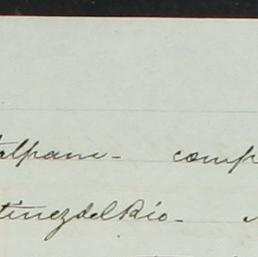 talpam- comp
tinez del Rio-